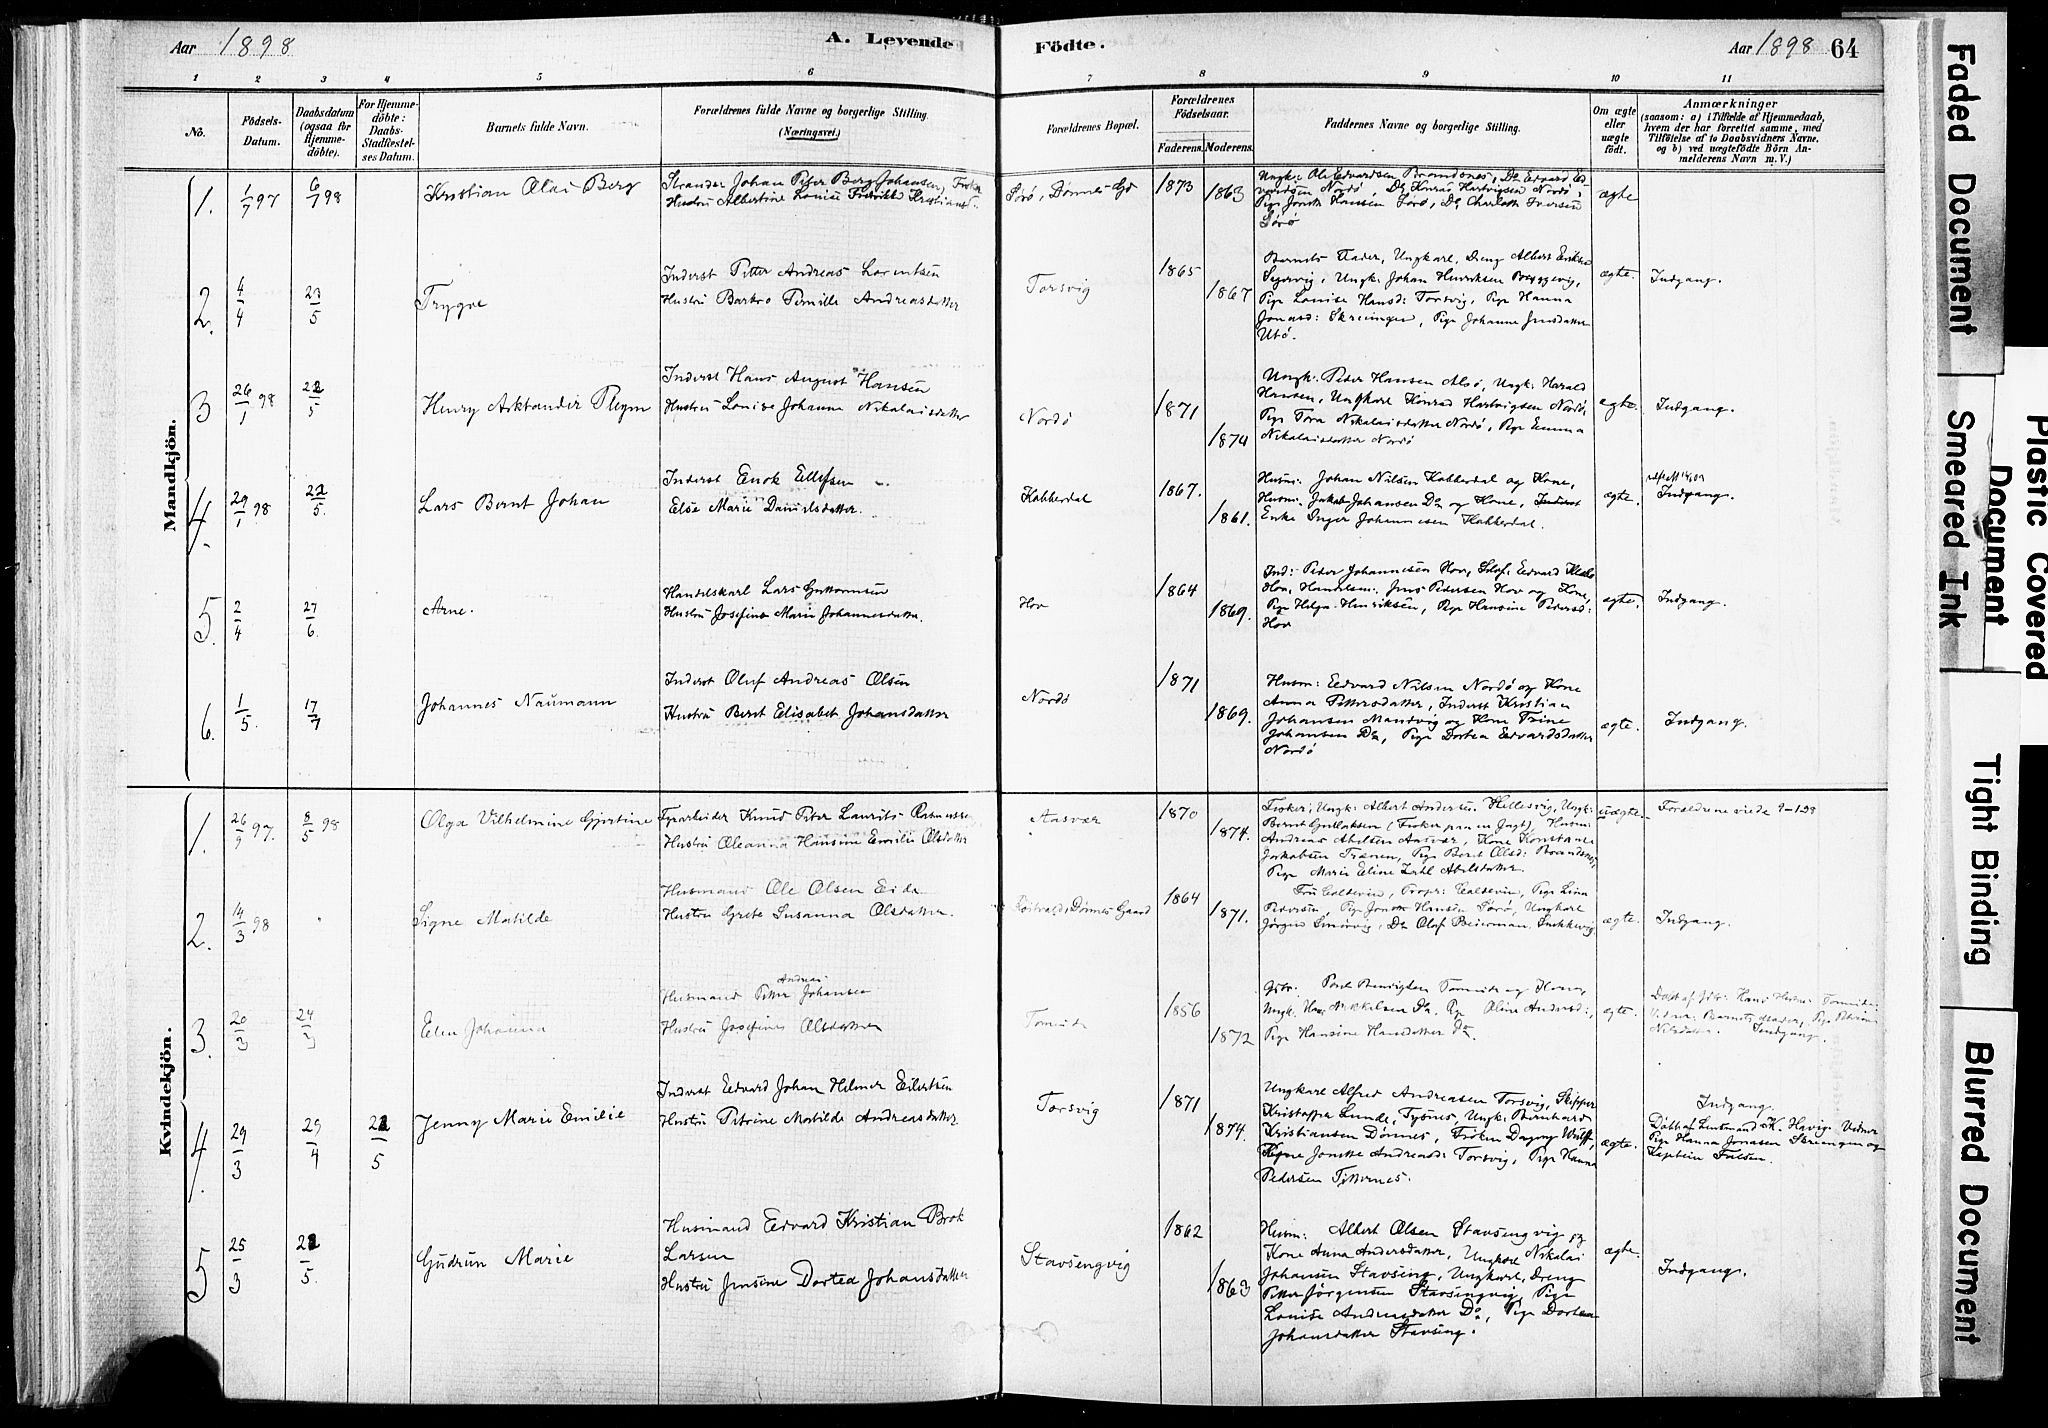 Aar 1898
A. Levende Födte.
Aar 1898 64
1 2 3 4 5 6 7 8 9 10 11
No.
Födsels-Datum.
Daabsdatum (ogsaa for Hjemme-döbte).
For Hjemme-döbte: Daabs-Stadfæstel-ses Datum.
Barnets fulde Navn.
Forældrenes fulde Navne og borgerlige Stilling. (Næringsvei.)
Forældrenes Bopæl.
Forældrenes Födselsaar.
Faderens. Moderens.
Faddernes Navne og borgerlige Stilling.
Om ægte eller uægte födt.
Anmærkninger
(saasom: a) i Tilfælde af Hjemmedaab,
hvem der har forrettet samme, med
Tilföielse af to Daabsvidners Navne,
og b) ved uægtefödte Börn An-
melderens Navn m. V.)
Mandkjön.
1. 1/7 97 6/7 98 Kristian Olai Berg
Strandr Johan Peter Berg Johansen,
Hustru Albertine Louise Fredrikke
Sørø, Dønnes Gd 1873 1863
Ungk: Ole Edvardsen Brandsnes, Do Edvard Ed-
vardsen Nordø, Do Konrad Hartvigsen Nordø,
Pige Hansen Sørø, Do Charlotte Iversen
Sørø
ægte
2. 4/4 23/5 Trygve
Inderst Petter Andreas Lorentsen
Hustru Barbro Pernille Andreasdatter
Torsvig 1865 1867
Barnets Fader, Ungkarl, Dreng Albert
Ungk: Johan Henriksen
Pige Louise Hansd: Torsvig, Pige Hanna
Jonasd: Skreingen, Pige Johanna Jensdatter
Utø.
ægte. Indgang.
3 26/1 98 22/5 Henry Arktander Pleym
Inderst Hans August Hansen
Hustru Louise Johanna Nikolaisdatter
Nordø 1871 1874
Ungk: Peter Hansen Alsø, Ungk: Harald
Hansen, Ungkarl Konrad Hartvigsen Nordø,
Pige Tora Nikolaisdatter Nordø, Pige Emma
Nikolaisdatter Nordø
ægte. Indgang.
4. 29/1 98 22/5. Lars Bernt Johan
Inderst Enok Ellefsen
Else Marie Danielsdatter.
Kobberdal 1867. 1861.
Husm: Johan Nilsen Kobberdal og Kone,
Husm: Jakob Johansen Do og Kone, Inderst
Enke Inger Johannesen Kobberdal.
ægte. Indgang.
5. 2/4 27/6. Arne.
Handelskarl Lars Guttormsen
Hustru Josefine Marie Johannesdatter.
Hov 1864 1869.
Ind: Peter Johannesen Hov, Edvard
Hov, Jens Pedersen Hov og Kone,
Pige Helga Henriksen, Pige Hansine Pedersd:
Hov
ægte. Indgang.
6. 1/5. 17/7 Johannes Naumann
Inderst Oluf Andreas Olsen
Hustru Beret Elisabet Johansdatter
Nordø 1871 1869.
Husm: Edvard Nilsen Nordø og Kone
Anna Pettersdatter, Inderst Kristian
Johansen Mandvig og Kone Trine
Johansen Do, Pige Dortea Edvardsdatter
Nordø
ægte. Indgang.
Kvindekjön.
1. 26/9 97. 8/5 98 Olga Vilhelmine Gjertine
Fyrarbeider Knud Peter Laurits Rasmussen
Hustru Oleanna Hansine Emilie Olsdatter
Aasvær 1870 1874.
Fisker, Ungk: Albert Andersen Hellesvig, Ungk:
Bernt (Fisker paa en Jagt) Husm:
Andreas Abelsen Aasvær, Kone Konstanse
Jakobsen Trænen, Pige Beret Olsd:
Pige Marie Eline Abelsdatter
uægte. Forældrene viede 9-1-98
2. 14/3 98 Signe Matilde
Husmand Ole Olsen Eide
Hustru Grete Susanna Olsdatter.
Dønnes Gaard 1864 1871.
Fru Coldevin, Propr: Coldevin, Pige Lina
Pedersen, Pige Hansen Sørø, Ungkarl
Jørgen Smørvig, Do Olaf Beierman
ægte. Indgang.
3. 20/3 24/3 Elen Johanna
Husmand Petter Andreas Johansen
Hustru Josefine Olsdatter
1856 1872
og Kone,
Ungk. Hans Mikkelsen Do, Pige Oline Andersd:,
Pige Hansine Hansdatter Do.
ægte.
Barnets Moder, Pige
Nilsdatter. Indgang.
4. 29/3 29/4 22/5 Jenny Marie Emilie
Inderst Edvard Johan Helmer Eilertsen
Hustru Petrine Matilde Andreasdatter
Torsvig 1871 1874.
Ungkarl Alfred Andreasen Torsvig, Skipper
Kristoffer Lunde, Tysnes, Ungk: Bernhard
Kristiansen Dønnes, Frøken Dagny Wulff,
Andreasd: Torsvig, Pige Hanna
Pedersen Titternes.
ægte.
Indgang.
Døbt af Løitnand K. Havig. Vidner
Pige Hanna Jonasen Skreingen og
Kaptein Falsen.
5 25/3 22/5. Gudrun Marie
Husmand Edvard Kristian Brok
Larsen
Hustru Jensine Dortea Johansdatter
Stavsengvig 1862 1863
Husm: Albert Olsen Stavsengvig og
Kone Anna Andersdatter, Ungkarl Nikolai
Johansen Stavseng, Ungkarl, Dreng
Petter Jørgensen Stavsengvig, Pige
Louise Andreasdatter Do, Pige Dortea
Johansdatter Stavseng.
ægte. Indgang.
Faded Document
Smeared Ink
Plastic Covered Document
Tight Binding
Blurred Document